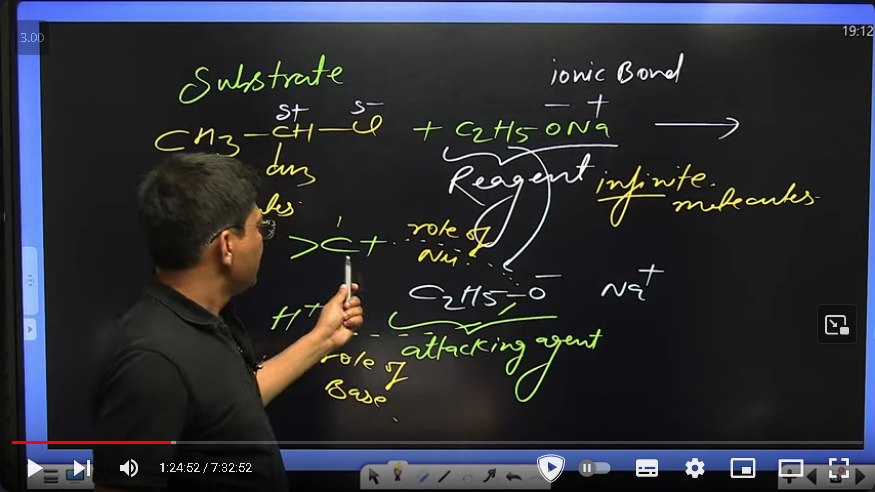 3.00
19:12
Substrate
ionic Bond
δ+ δ- - +
CH3-CH-Cl + C2H5ONa →
CH3
Reagent infinite molecules.
>C+ role of Nu.
C2H5-O- Na+
H+ attacking agent
role of
Base
1:24:52 / 7:32:52